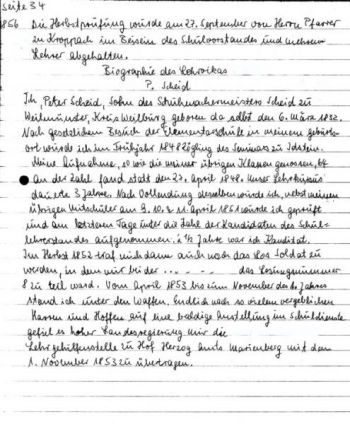 Seite 34
1856 Die Herbstprüfung wurde am 27. September von Herrn Pfarrer
zu Kroppach im Beisein des Schulvorstandes und mehrern
Lehrer abgehalten.
Biographie des Lehrvikas
P. Scheid
Ich, Peter Scheid, Sohn des Schuhmachermeisters Scheid zu
Weilmünster, Kreis Weilburg geboren da selbst den 6. März 1832.
Nach gesetzlichen Besuch der Elementarschule in meinem geburts-
ort wurde ich im Frühjahr 1848 Zögling des Seminars zu Idstein.
Meine Aufnahme, so wie die meiner übrigen Klassengenossen, 64
an der Zahl fand statt den 27. April 1848. Unser Lehrkursus
dauerte 3 Jahre. Nach Vollendung desselben wurde ich, nebst meinen
übrigen Mitschüler am 9. 10. u 11. April 1851 wurde ich geprüft
und am letzteren Tage unter die Zahl der Kandidaten des Schul-
lehrerstandes aufgenommen. 2 ½ Jahre war ich Kandidat.
Im Herbst 1852 traf mich dann auch noch das Los Soldat zu
werden, in dem mir bei der . . - - - - . das Losungsnummer
8 zu teil ward. Vom April 1853 bis zum November des Jahres
stand ich unter den Waffen. Endlich nach so vielem vergeblichen
Harren und Hoffen auf eine baldige Anstellung im Schuldienste
gefiel es hoher Landesregierung mir die
Lehrgehilfenstelle zu Hof Herzog Amts Marienberg mit dem
1. November 1853 zu übertragen.